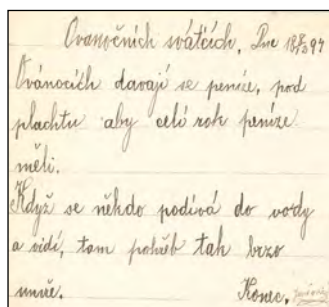 Ovanočních svátcích, Dne 18 8/12 94
Ovánocích davají se peníze, pod
plachtu aby celí rok peníze
měli.
Když se někdo podívá do vody
a vidí, tam pohřeb tak brzo
umře. Konec.